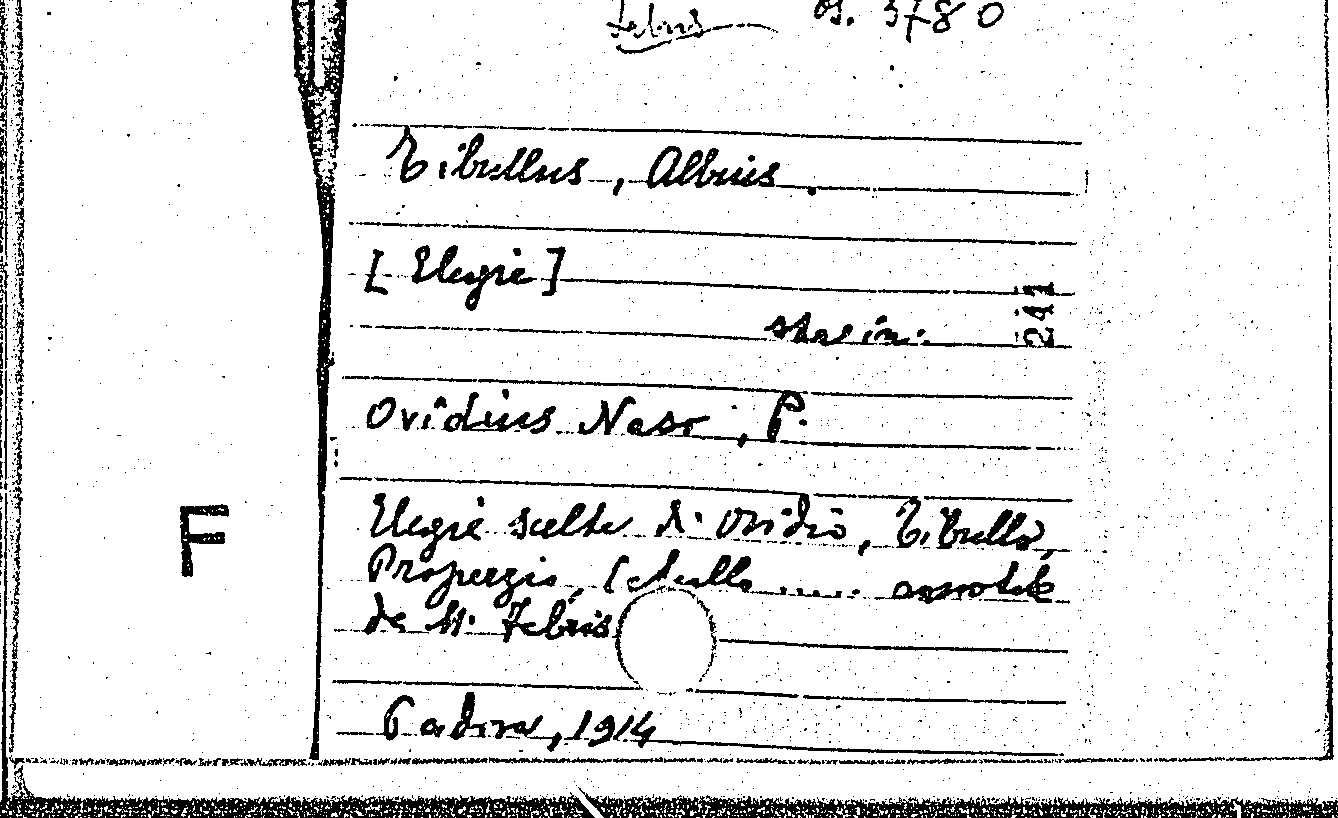 Febris Os. 3780
Tibullus, Albius.
[Elegie]
sta in: 241
Ovidius Naso, P.
F
Elegie scelte di Ovidio, Tibullo,
Properzio, Catullo ..... annotate
da N. Febris
Padova, 1914